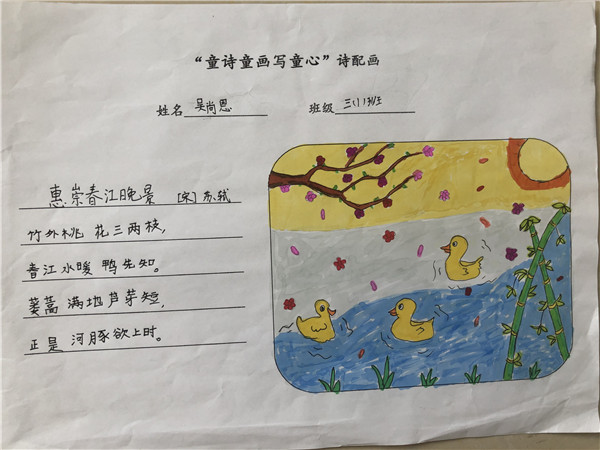 “童诗童画写童心”诗配画
姓名 吴尚恩 班级 三(1)班
惠崇春江晚景 [宋] 苏轼
竹外桃花三两枝，
春江水暖鸭先知。
蒌蒿满地芦芽短，
正是河豚欲上时。